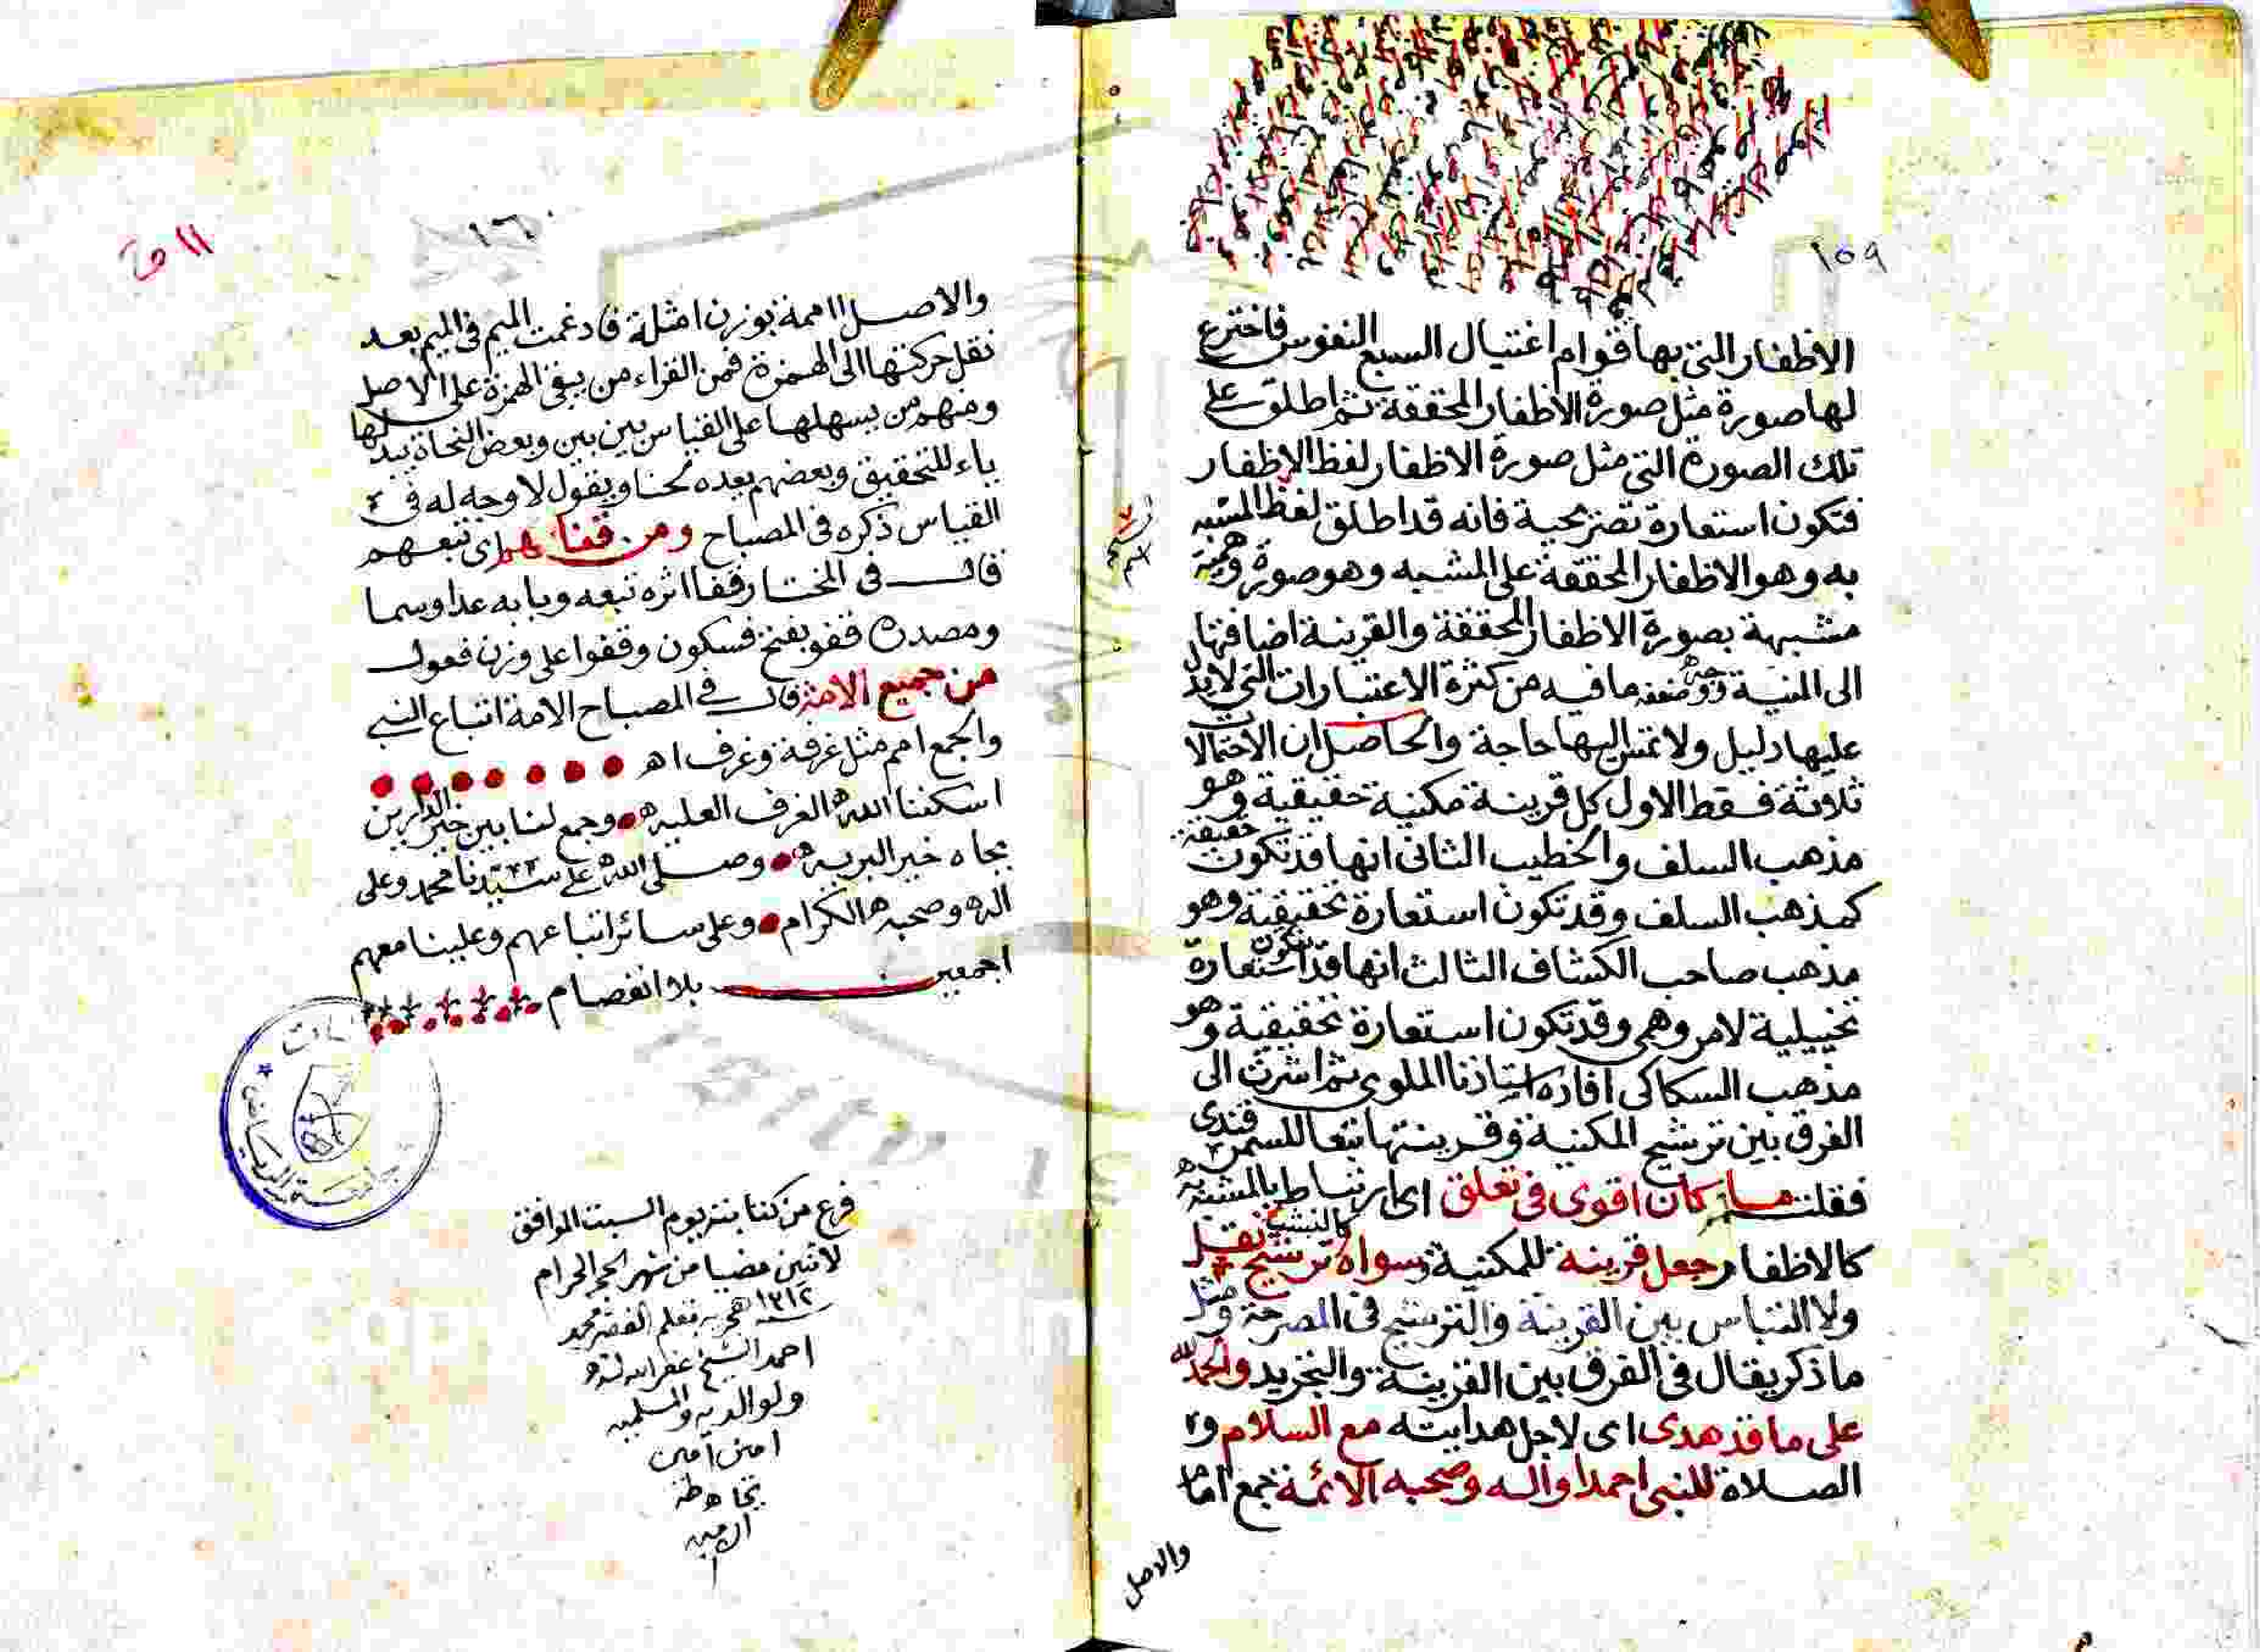 ١٥٩
الاظفار التى بها قوام اغتيال السبع النفوس فاخترع
لها صورة مثل صورة الاظفار المحققة ثم اطلق على
تلك الصورة التى مثل صورة الاظفار لفظ الاظفار
فتكون استعارة تصريحية فانه قد اطلق لفظ المشبه
به وهو الاظفار المحققة على المشبه وهو صورة وهمية
مشبهة بصورة الاظفار المحققة والقرينة اضافتها
الى المنية ووجه ضعفه ما فيه من كثرة الاعتبارات التى لا يدل
عليها دليل ولا تمس اليها حاجة والحاصل ان الاحتمالات
ثلاثة فقط الاول كل قرينة مكنية حقيقية وهو
مذهب السلف والخطيب الثانى انها قد تكون حقيقة
كمذهب السلف وقد تكون استعارة تحقيقية وهو
مذهب صاحب الكشاف الثالث انها قد تكون استعارة
تخييلية لامر وهمى وقد تكون استعارة تحقيقية وهو
مذهب السكاكى افاده استاذنا الملوى ثم اشرت الى
الفرق بين ترشيح المكنية وقرينتها تبعا للسمرقندى
فقلت ما كان اقوى فى تعلق اى ارتباط بالمشبه به
كالاظفار جعل قرينة للمكنية وسواه ترشيح نقل
ولا التباس بين القرينة والترشيح فى المصرحة ومثل
ما ذكر يقال فى الفرق بين القرينة والتجريد والحمد لله
على ما قد هدى اى لاجل هدايته مع السلام و
الصلاة للنبى احمدا واله وصحبه الائمة جمع امام
والاصل
١٦٠
١١ ق
والاصل ااممة بوزن امثلة فادغمت الميم فى الميم بعد
نقل حركتها الى الهمزة فمن القراء من يبقى الهمزة على الاصل
ومنهم من يسهلها على القياس بين بين وبعض النحاة يبدلها
ياء للتحقيق وبعضهم يعده لحنا ويقول لا وجه له فى
القياس ذكره فى المصباح ومن قفاهم اى تبعهم
قال فى المختار قفا اثره تبعه وبابه عدا وسما
ومصدره قفو بفتح فسكون وقفوا على وزن فعول
من جميع الامة قال فى المصباح الامة اتباع النبى
والجمع امم مثل غرفة وغرف اه
اسكننا الله الغرف العلية وجمع لنا بين خير الدارين
بجاه خير البرية وصلى الله على سيدنا محمد وعلى
اله وصحبه الكرام وعلى سائر اتباعهم وعلينا معهم
اجمعين بلا انفصام
جامعة الرياض
فرغ من كتابته يوم السبت الموافق
لاثنين مضيا من شهر الحجة الحرام
١٣١٢ هجرية بقلم الفقير محمد
احمد الشيخ غفر الله له
ولوالديه والمسلمين
امين امين
بجاه طه
الامين